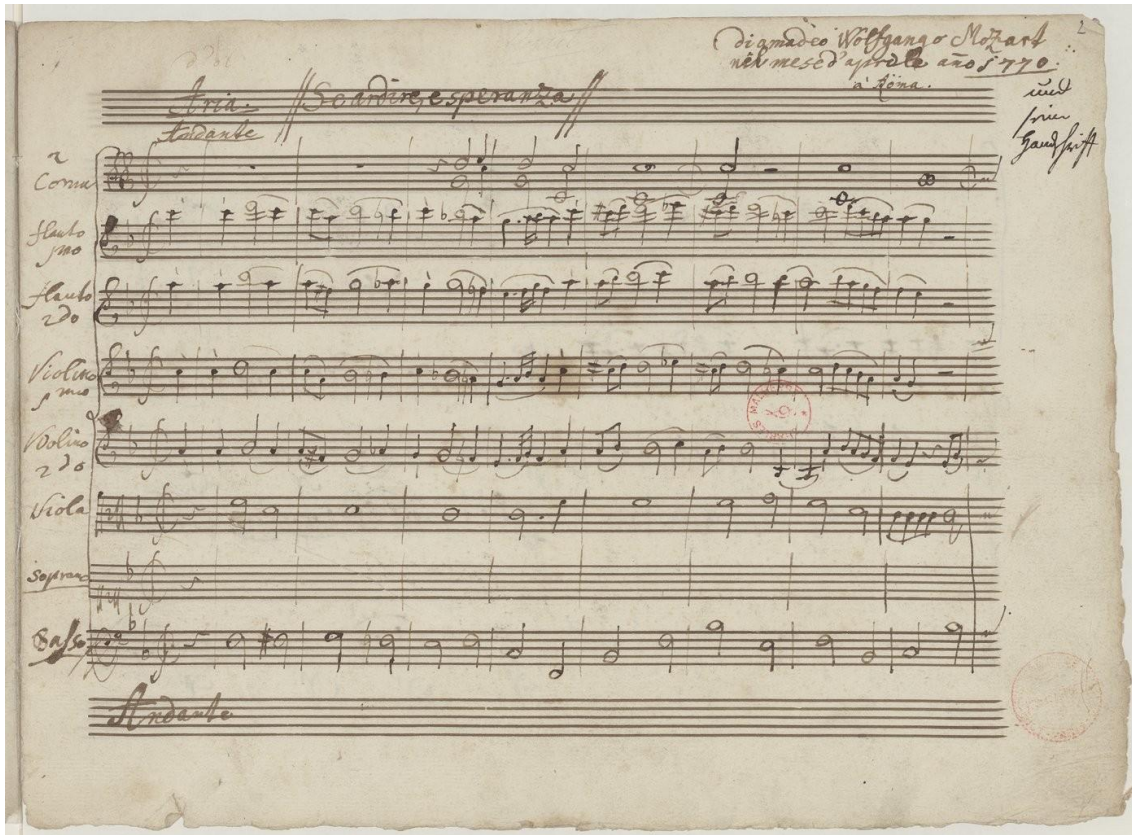 2
di amadeo Wolfgango Mozart
nel mese d'aprile año 1770.
à Roma.
und
seine
Handschrift
Aria. Se ardire, e speranza
Andante
2
Corni
flauto
pmo
flauto
2do
Violino
pmo
Violino
2do
Viola
Soprano
Basso
Andante